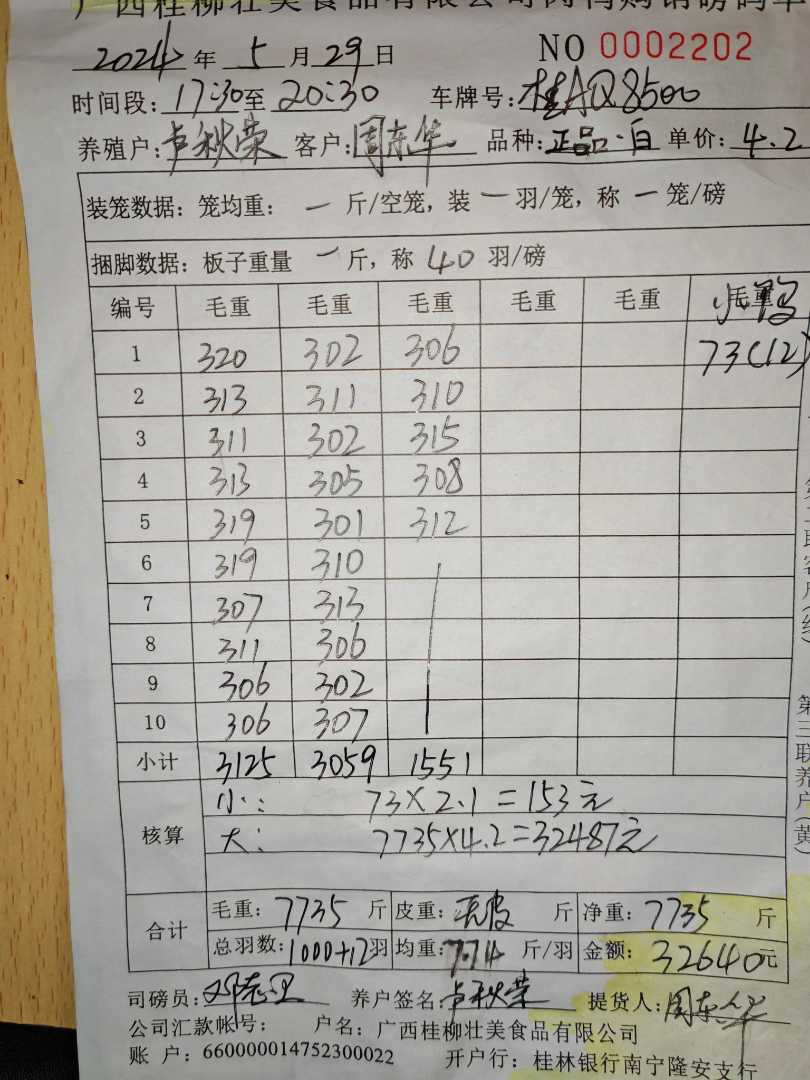 广西桂柳壮美食品有限公司肉鸭购销磅码单
2024年 5月29日 NO 0002202
时间段:17:30至20:30 车牌号:桂AQ8500
养殖户:卢秋荣 客户:周东华 品种:正品·白 单价:4.2
装笼数据:笼均重: 一 斤/空笼,装 一 羽/笼,称 一 笼/磅
捆脚数据:板子重量 一 斤,称 40 羽/磅
编号 毛重 毛重 毛重 毛重 毛重 毛重 小鸭
1 320 302 306 73(12)
2 313 311 310
3 311 302 315
4 313 305 308
5 319 301 312
6 319 310
7 307 313
8 311 306
9 306 302
10 306 307
小计 3125 3059 1551
核算
小: 73×2.1=153元
大: 7735×4.2=32487元
合计
毛重:7735斤 皮重: 斤 净重:7735斤
总羽数:1000+12羽 均重:7.74斤/羽 金额:32640元
司磅员: 养户签名:卢秋荣 提货人:周东华
公司汇款帐号: 户名:广西桂柳壮美食品有限公司
账 户:660000014752300022 开户行:桂林银行南宁隆安支行
第三联养户(黄)